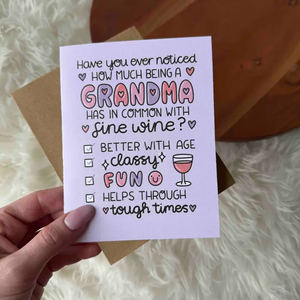 Have you ever noticed
HOW MUCH BEING A
GRANDMA
HAS IN COMMON WITH
fine wine?
BETTER WITH AGE
classy
FUN
HELPS THROUGH
tough times